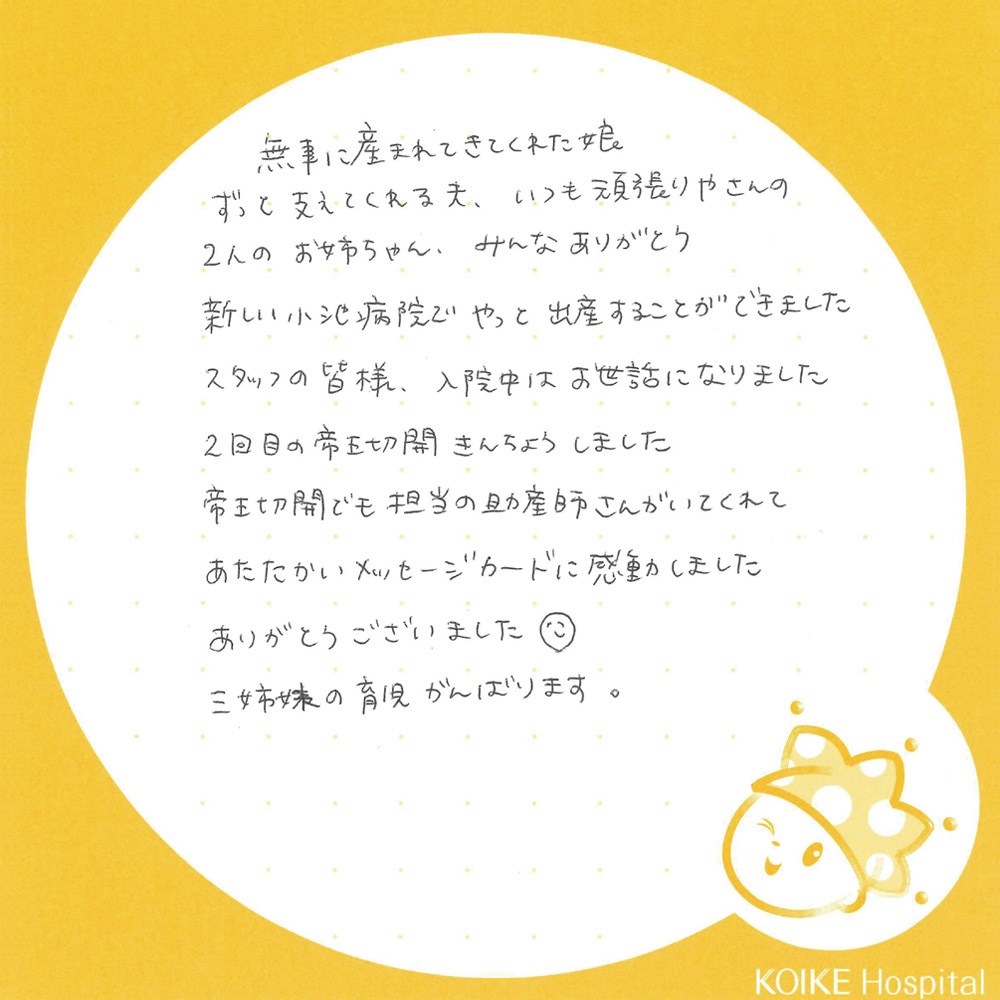 無事に産まれてきてくれた娘
ずっと支えてくれる夫、いつも頑張りやさんの
2人のお姉ちゃん、みんなありがとう
新しい小池病院でやっと出産することができました
スタッフの皆様、入院中はお世話になりました
2回目の帝王切開きんちょうしました
帝王切開でも担当の助産師さんがいてくれて
あたたかいメッセージカードに感動しました
ありがとうございました
三姉妹の育児がんばります。
KOIKE Hospital